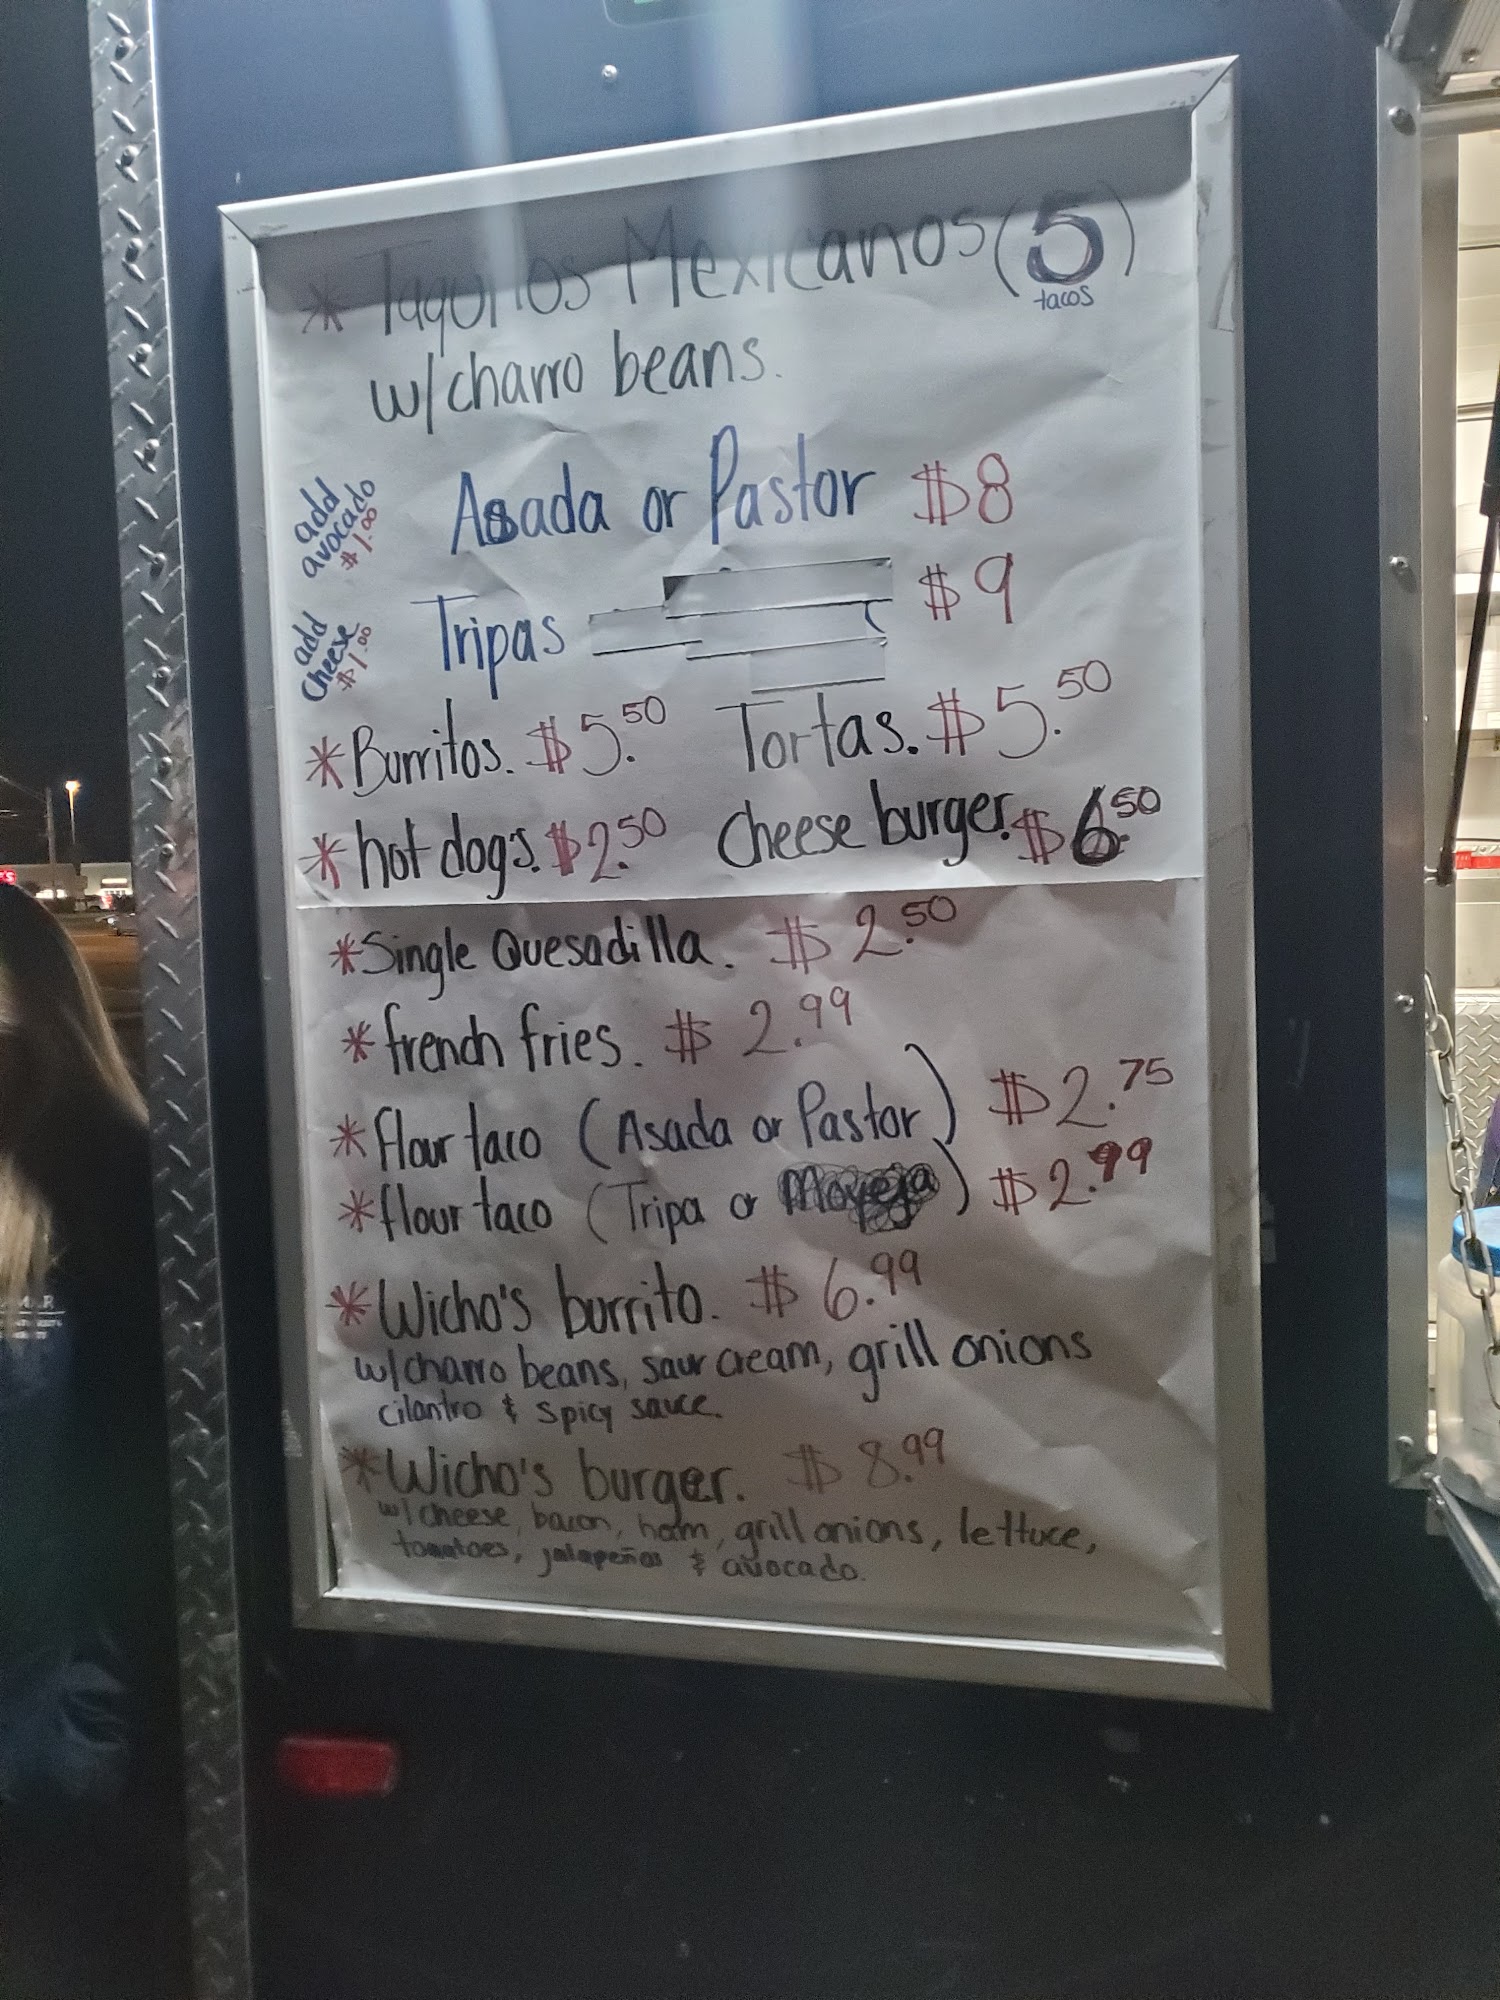 * Taquitos Mexicanos (5)
tacos
w/charro beans.
add
avocado
$1.00
Asada or Pastor $8
add
cheese
$1.00
Tripas $9
*Burritos. $5.50 Tortas. $5.50
*hot dogs. $2.50 Cheese burger. $6.50
*Single Quesadilla. $2.50
*french fries. $2.99
*flour taco (Asada or Pastor) $2.75
*flour taco (Tripa or ) $2.99
*Wicho's burrito. $6.99
w/charro beans, saur cream, grill onions
cilantro & spicy sauce.
*Wicho's burger. $8.99
w/cheese, bacon, ham, grill onions, lettuce,
tomatoes, jalapeños & avocado.